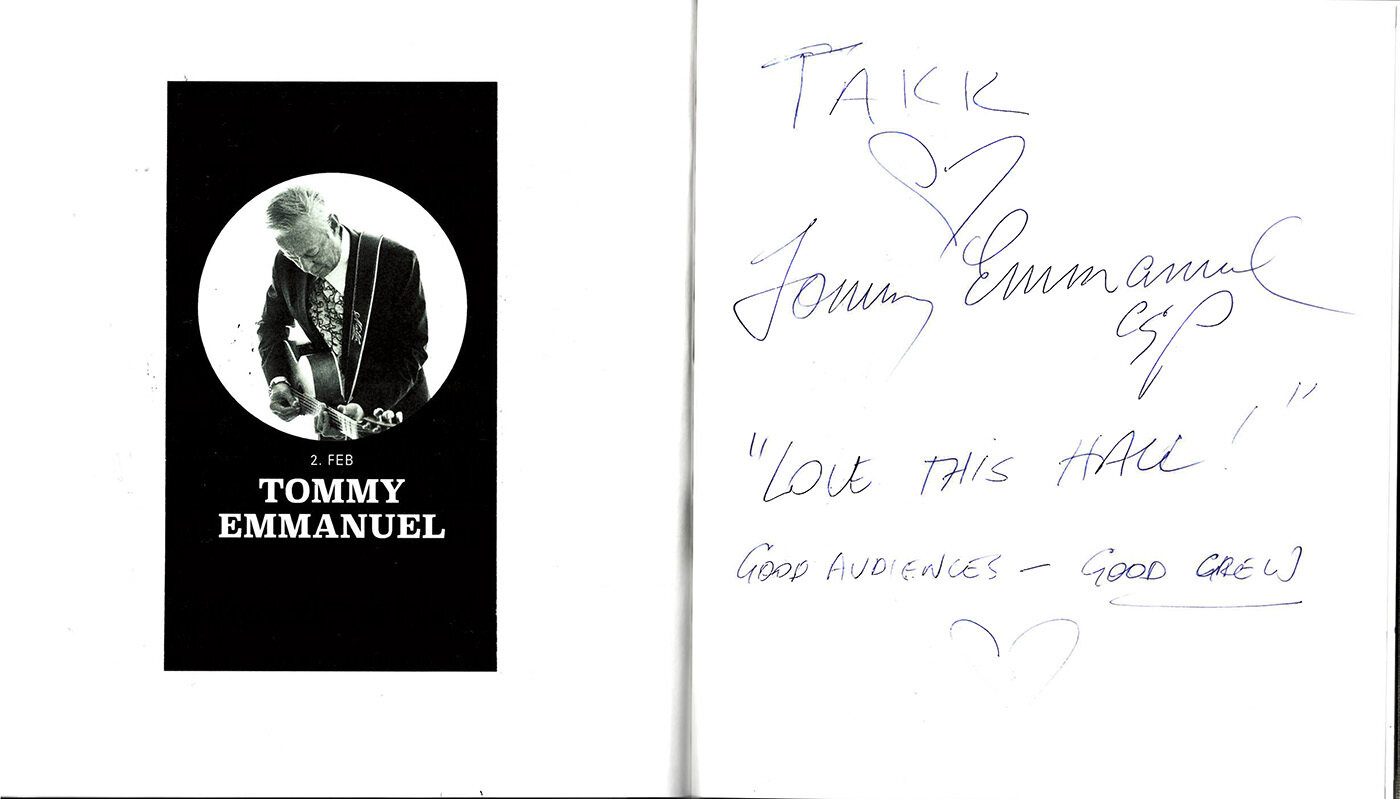 2. FEB
TOMMY
EMMANUEL
TAKK
Tommy Emmanuel
CGP
"LOVE THIS HALL!"
GOOD AUDIENCES — GOOD CREW